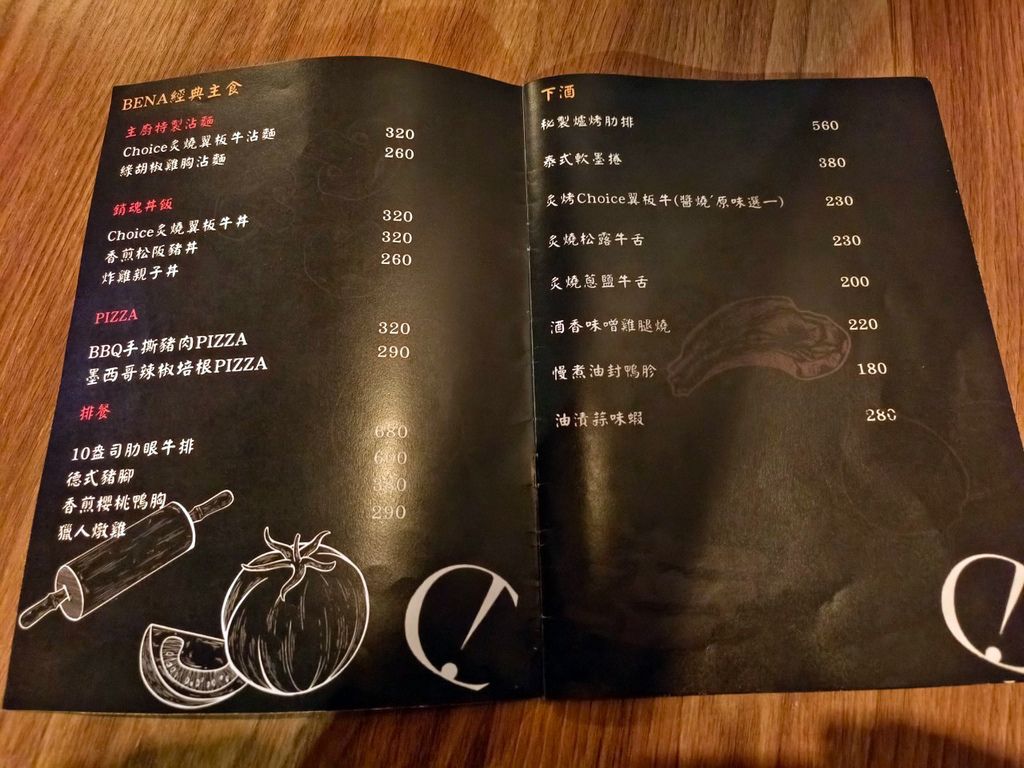 BENA經典主食
主廚特製沾麵
Choice炙燒翼板牛沾麵 320
綠胡椒雞胸沾麵 260
銷魂丼飯
Choice炙燒翼板牛丼 320
香煎松阪豬丼 320
炸雞親子丼 260
PIZZA
BBQ手撕豬肉PIZZA 320
墨西哥辣椒培根PIZZA 290
排餐
10盎司肋眼牛排 680
德式豬腳
香煎櫻桃鴨胸
獵人燉雞 290
下酒
秘製爐烤肋排 560
泰式軟墨捲 380
炙烤Choice翼板牛(醬燒˙原味選一) 230
炙燒松露牛舌 230
炙燒蔥鹽牛舌 200
酒香味噌雞腿燒 220
慢煮油封鴨胗 180
油漬蒜味蝦 280